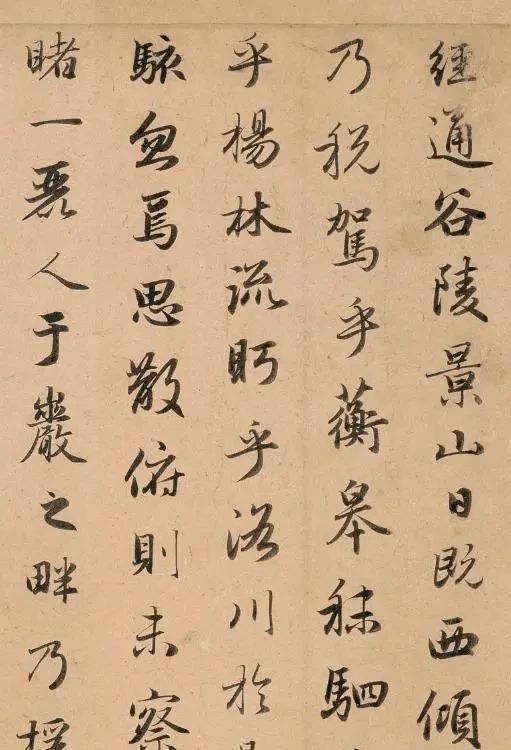 經通谷陵景山日既西傾
乃税駕乎蘅皋秣駟
乎楊林流眄乎洛川於
駭忽焉思散俯則未察
睹一麗人于巖之畔乃